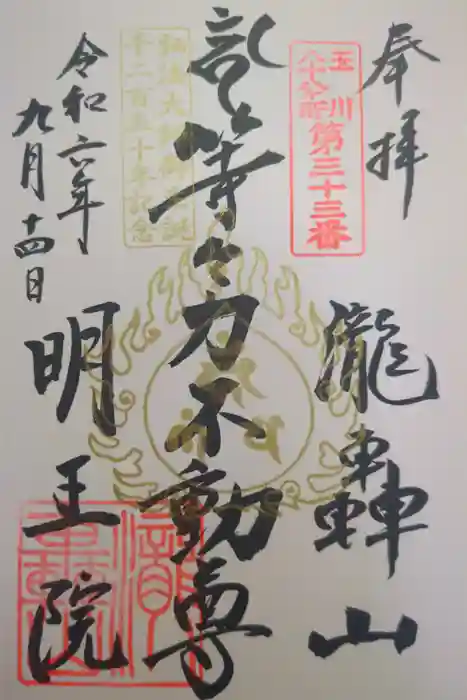 奉拝
玉川
八十八ヶ所
第三十三番
瀧轟山
弘法大師御生誕
千二百五十年記念
等々力不動尊
明王院
令和六年
九月十四日